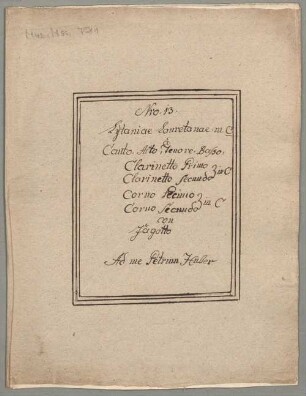 Mus. Ms.
Nro. 13.
Lytaniae Lauretanae in C
Canto, Alto, Tenore, Basso,
Clarinetto Primo
Clarinetto Secundo
in C
Corno Primo
Corno Secundo
in C
con
Fagotto
Ad me Petrum Huber